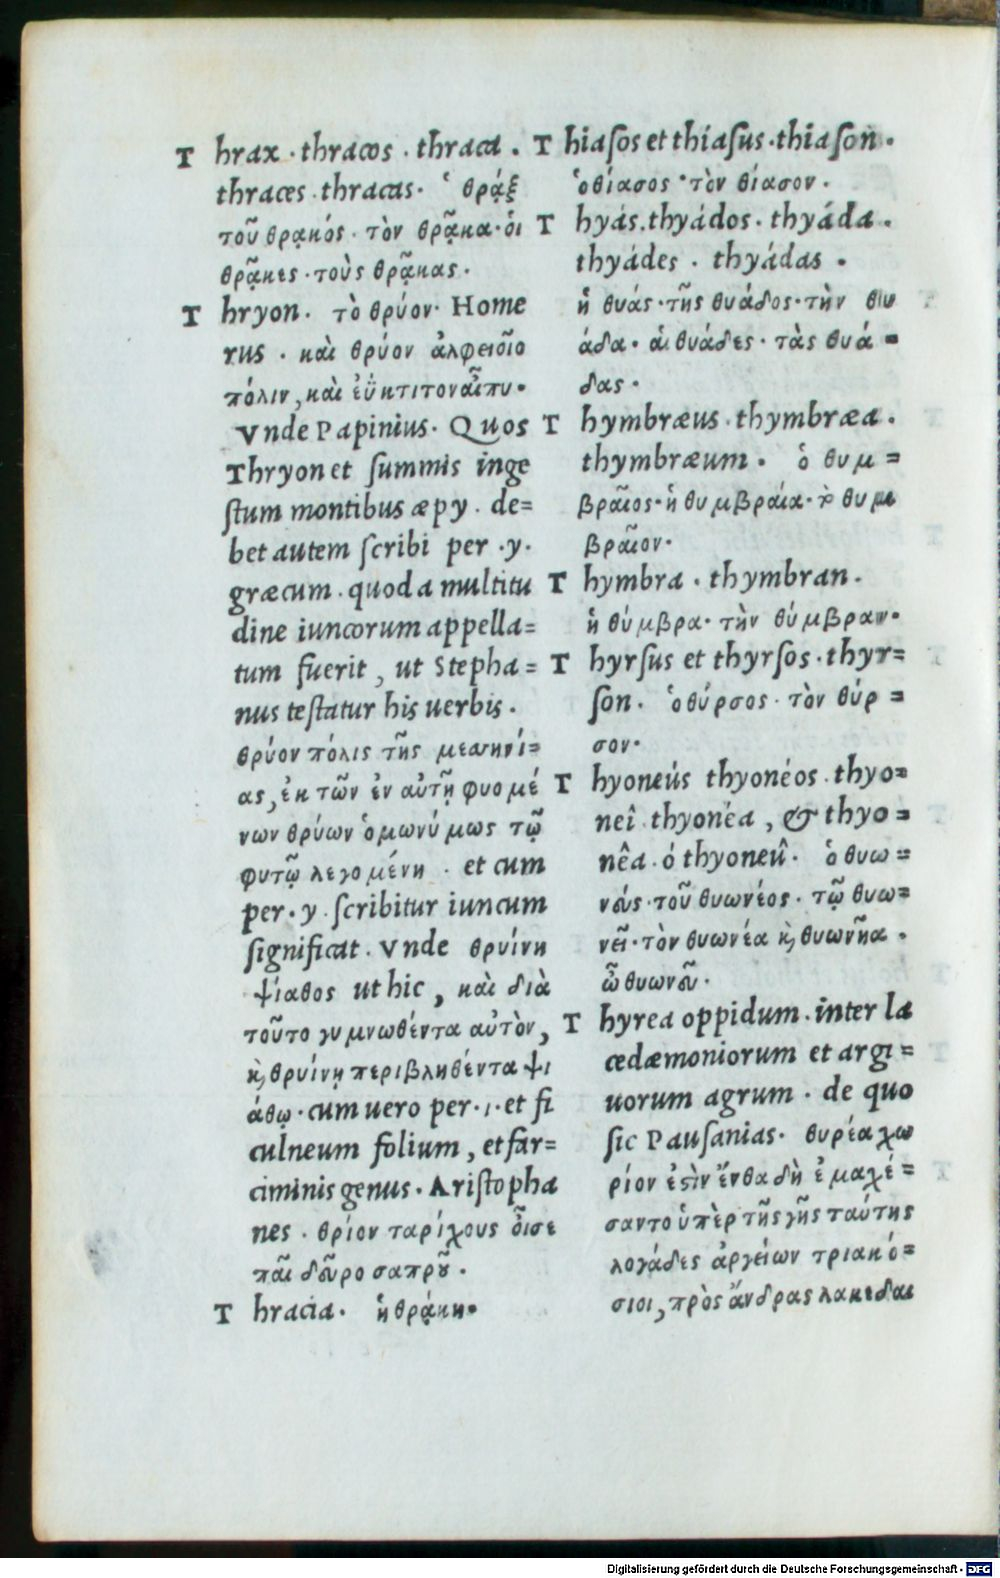 Thrax · thracos · thraca .
thraces . thracas · ὁ θρᾴξ
τοῦ θρᾳκός · τὸν θρᾷκα · οἱ
θρᾷκες · τοὺς θρᾷκας .
Thryon . τὸ θρύον · Home
rus . καὶ θρύον ἀλφειοῖο
πόλιν, καὶ ἐΰκτιτον αἶπυ .
Vnde Papinius . Quos
Thryon et ſummis inge
ſtum montibus æpy . de=
bet autem ſcribi per .y.
græcum . quod a multitu
dine iuncorum appella=
tum fuerit, ut Stepha=
nus teſtatur his uerbis .
θρύον πόλις τῆς μεσηνί=
ας, ἐκ τῶν ἐν αὐτῇ φυομέ
νων θρύων ὁμωνύμως τῷ
φυτῷ λεγομένη . et cum
per . y . ſcribitur iuncum
ſignificat . Vnde θρυίνη
ψίαθος ut hic, καὶ διὰ
τοῦτο γυμνωθέντα αὐτὸν,
κ̀ θρυίνῃ περιβληθέντα ψι
άθῳ · cum uero per . ι . et fi
culneum folium, et far=
ciminis genus . Ariſtopha
nes . θρίον ταρίχους οἶσε
παῖ δεῦρο σαπροῦ .
Thracia . ἡ θρᾴκη .
Thiaſos et thíaſus . thiaſon .
ὁ θίασος · τὸν θίασον .
Thyás . thyádos . thyáda .
thyádes . thyádas .
ἡ θυάς · τῆς θυάδος · τὴν θυ
άδα · αἱ θυάδες · τὰς θυά=
δας .
Thymbræus . thymbræa .
thymbræum . ὁ θυμ=
βραῖος · ἡ θυμβραία · τὸ θυμ
βραῖον .
Thymbra . thymbran .
ἡ θύμβρα · τὴν θύμβραν .
Thyrſus et thyrſos . thyr=
ſon . ὁ θύρσος . τὸν θύρ=
σον .
Thyoneús thyonéos . thyo=
neî . thyonéa, & thyo=
nêa . ó thyoneû . ὁ θυω=
νεύς · τοῦ θυωνέος . τῷ θυω=
νεῖ · τὸν θυωνέα κ̀ θυωνῆα .
ὦ θυωνεῦ .
Thyrea oppidum . inter la
cedæmoniorum et argi=
uorum agrum . de quo
ſic Pauſanias . θυρέα χω
ρίον ἐστὶν ἔνθα δὴ ἐμαχέ=
σαντο ὑπὲρ τῆς γῆς ταύτης
λογάδες ἀργείων τριακό=
σιοι, πρὸς ἄνδρας λακεδαι
Digitalisierung gefördert durch die Deutsche Forschungsgemeinschaft · DFG